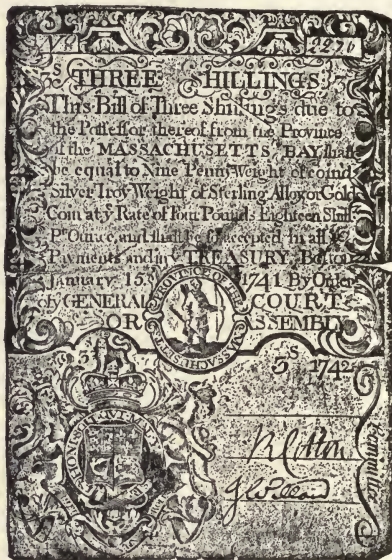 2271
3s THREE SHILLINGS 3s
This Bill of Three Shillings due to
the Possessor thereof from the Province
of the MASSACHUSETTS BAY shall
be equal to Nine Penny weight of coind
Silver Troy Weight of Sterling Alloy or Gold
Coin at ye Rate of Four Pounds Eighteen Shills
Pr Ounce, and shall be so accepted in all
Payments and in ye TREASURY. Boston
January 15. 1741 By Order
of ye GENERAL COURT
OR ASSEMBLY
PROVINCE OF THE MASSACHUSETTS
3s 1742
HONI SOIT QUI MAL Y PENSE
Committee